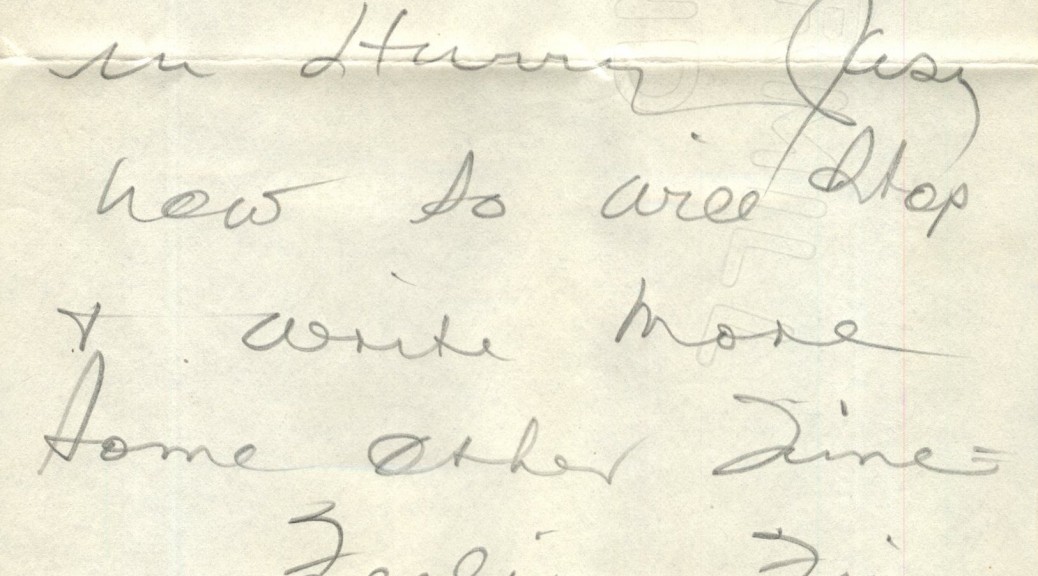 in Hurry (Jasy
how so will Stop
+ write more
some other Time=